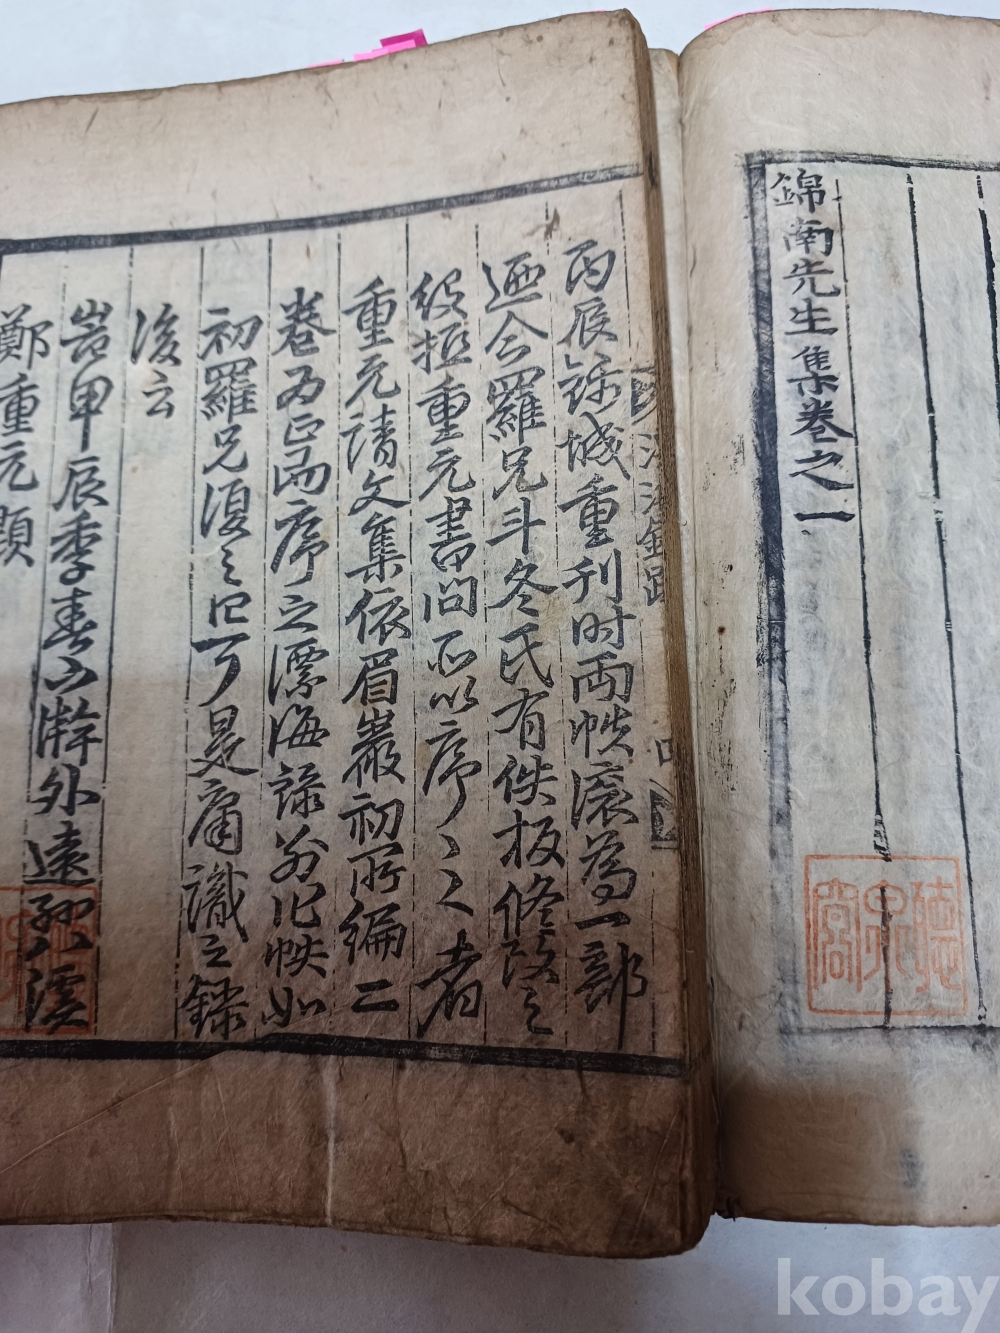 錦南先生集卷之一
漂海錄跋
四
丙辰錦城重刊时兩帙滚為一部
迺今羅兄斗冬氏有佚板修改之
役抵重元書問所以序之之者
重元請文集依眉巖初所編二
卷为正而序之漂海錄作帙如
初羅兄復之曰可是庸識之錄
後云
峕甲辰季春下澣外遠孫八溪
鄭重元題
kobay